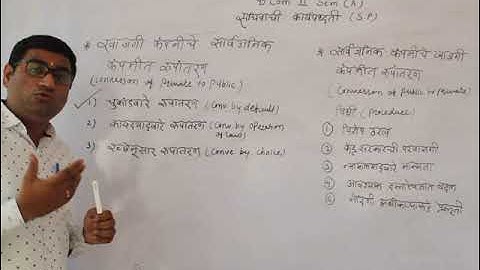 B Com II Sem (A)
सचिवाची कार्यपध्दती (S.P)
* खाजगी कंपनीचे सार्वजनिक
कंपनीत रुपांतरण
(Conversion of Private to Public)
1) चुकीव्दारे रुपांतरण (Conv by default)
2) कायद्याव्दारे रुपांतरण (Conv by operation of law)
3) इच्छेनुसार रुपांतरण (Conve by choice)
* सार्वजनिक कंपनीचे खाजगी
कंपनीत रुपांतरण
(Conversion of Public to Private)
विधी (Procedure)
① विशेष ठराव
② केंद्र सरकारची परवानगी
③ मान्यता
④ आवश्यक
⑤ नोंदणी